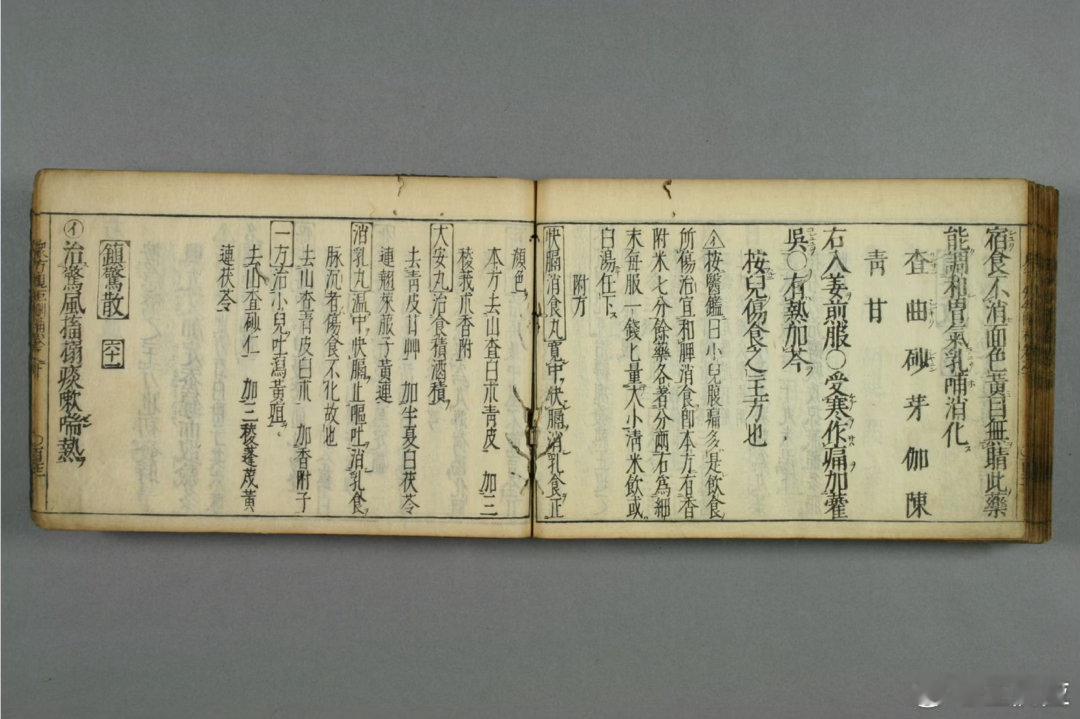 宿食不消面色黃白無睛此藥
能調和胃氣乳哺消化
查曲砂芽伽陳
靑甘
右入姜煎服○受寒作痛加藿
吳○有熱加芩
按兒傷食之主方也
按醫鑑曰小兒腹痛多是飲食
所傷治宜和脾消食即本方有香
附米七分餘藥各著分兩右爲細
末每服一錢匕量大小清米飲或
白湯任下
附方
快膈消食丸寬中快膈消乳食正
顏色
本方去山查白朮靑皮 加三
稜莪朮香附
大安丸治食積酒積
去靑皮甘艸 加半夏白茯苓
連翹萊服子黃連
消乳丸溫中快膈止嘔吐消乳食
脉沉者傷食不化故也
去山查靑皮白朮 加香附子
一方治小兒吐瀉黃疸
去山查砂仁 加三稜蓬莪黃
連茯苓
鎮驚散 六十一
㋑治驚風搐搦痰嗽喘熱